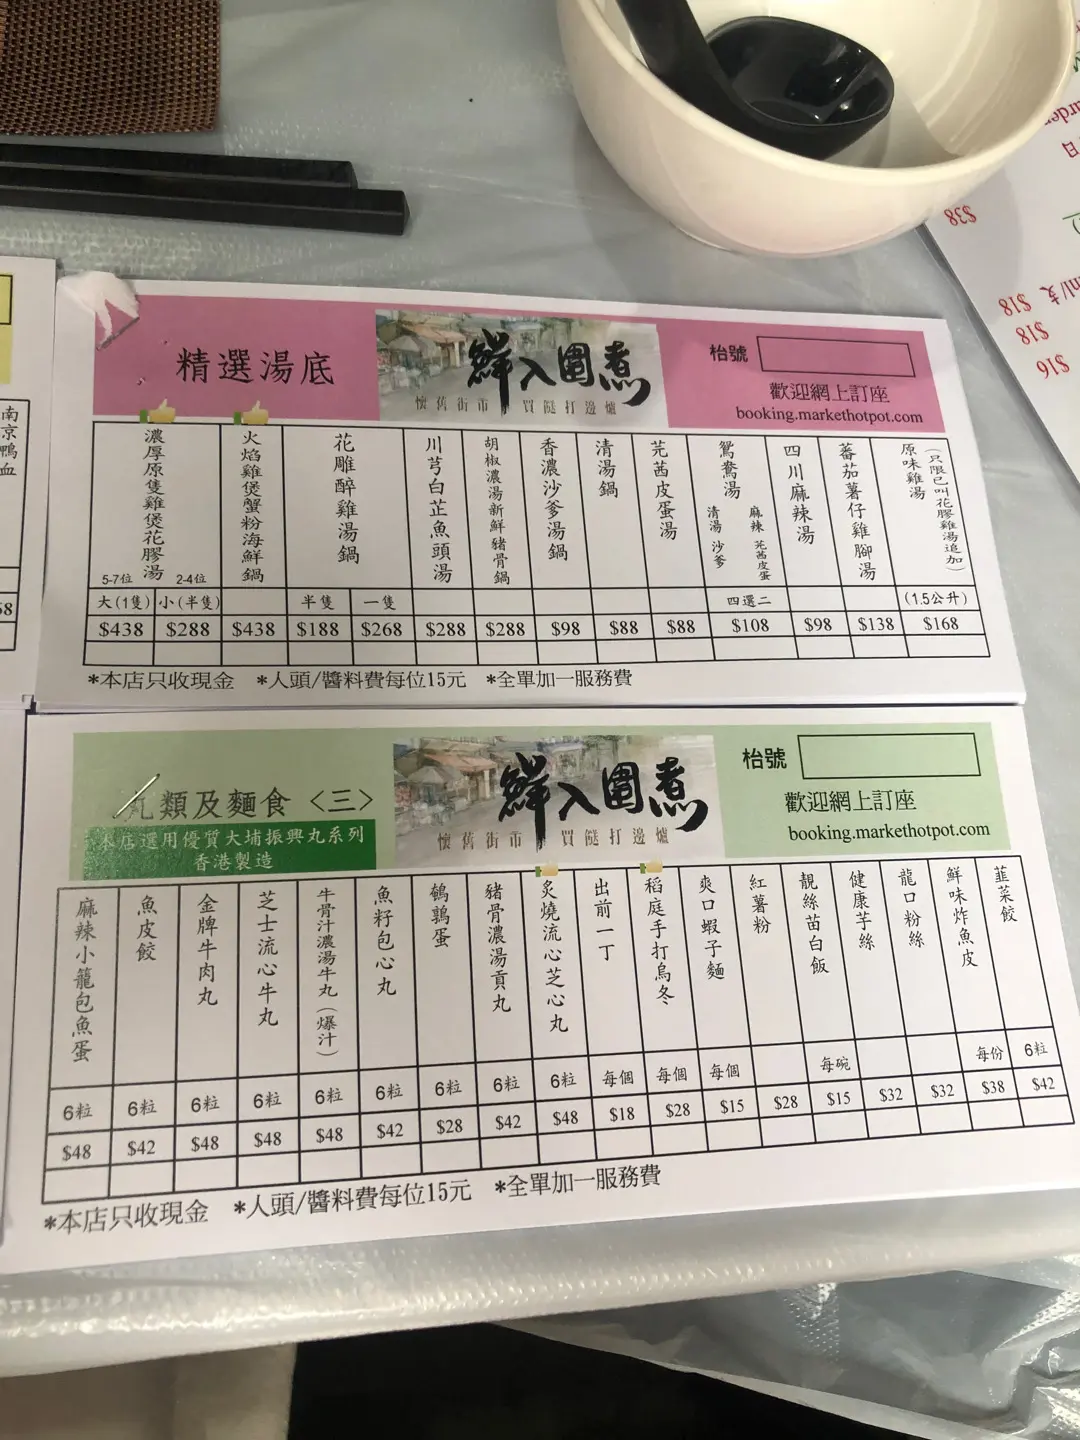 精選湯底
鮮入圍煮
懷舊街市 買餸打邊爐
枱號
歡迎網上訂座
booking.markethotpot.com
濃厚原隻雞煲花膠湯
5-7位 2-4位
火焰雞煲蟹粉海鮮鍋
花雕醉雞湯鍋
川芎白芷魚頭湯
胡椒濃湯新鮮豬骨鍋
香濃沙爹湯鍋
清湯鍋
芫茜皮蛋湯
鴛鴦湯
清湯 沙爹
麻辣 芫茜皮蛋
四川麻辣湯
蕃茄薯仔雞腳湯
原味雞湯
(只限已叫花膠雞湯追加)
大(1隻) 小(半隻) 半隻 一隻 四選二 (1.5公升)
$438 $288 $438 $188 $268 $288 $288 $98 $88 $88 $108 $98 $138 $168
*本店只收現金 *人頭/醬料費每位15元 *全單加一服務費
丸類及麵食〈三〉
本店選用優質大埔振興丸系列
香港製造
鮮入圍煮
懷舊街市 買餸打邊爐
枱號
歡迎網上訂座
booking.markethotpot.com
麻辣小籠包魚蛋
魚皮餃
金牌牛肉丸
芝士流心牛丸
牛骨汁濃湯牛丸(爆汁)
魚籽包心丸
鵪鶉蛋
豬骨濃湯貢丸
炙燒流心芝心丸
出前一丁
稻庭手打烏冬
爽口蝦子麵
紅薯粉
靚絲苗白飯
健康芋絲
龍口粉絲
鮮味炸魚皮
韮菜餃
6粒 6粒 6粒 6粒 6粒 6粒 6粒 6粒 6粒 每個 每個 每個 每碗 每份 6粒
$48 $42 $48 $48 $48 $42 $28 $42 $48 $18 $28 $15 $28 $15 $32 $32 $38 $42
*本店只收現金 *人頭/醬料費每位15元 *全單加一服務費
南京鴨血
$38
$18
$18
$16